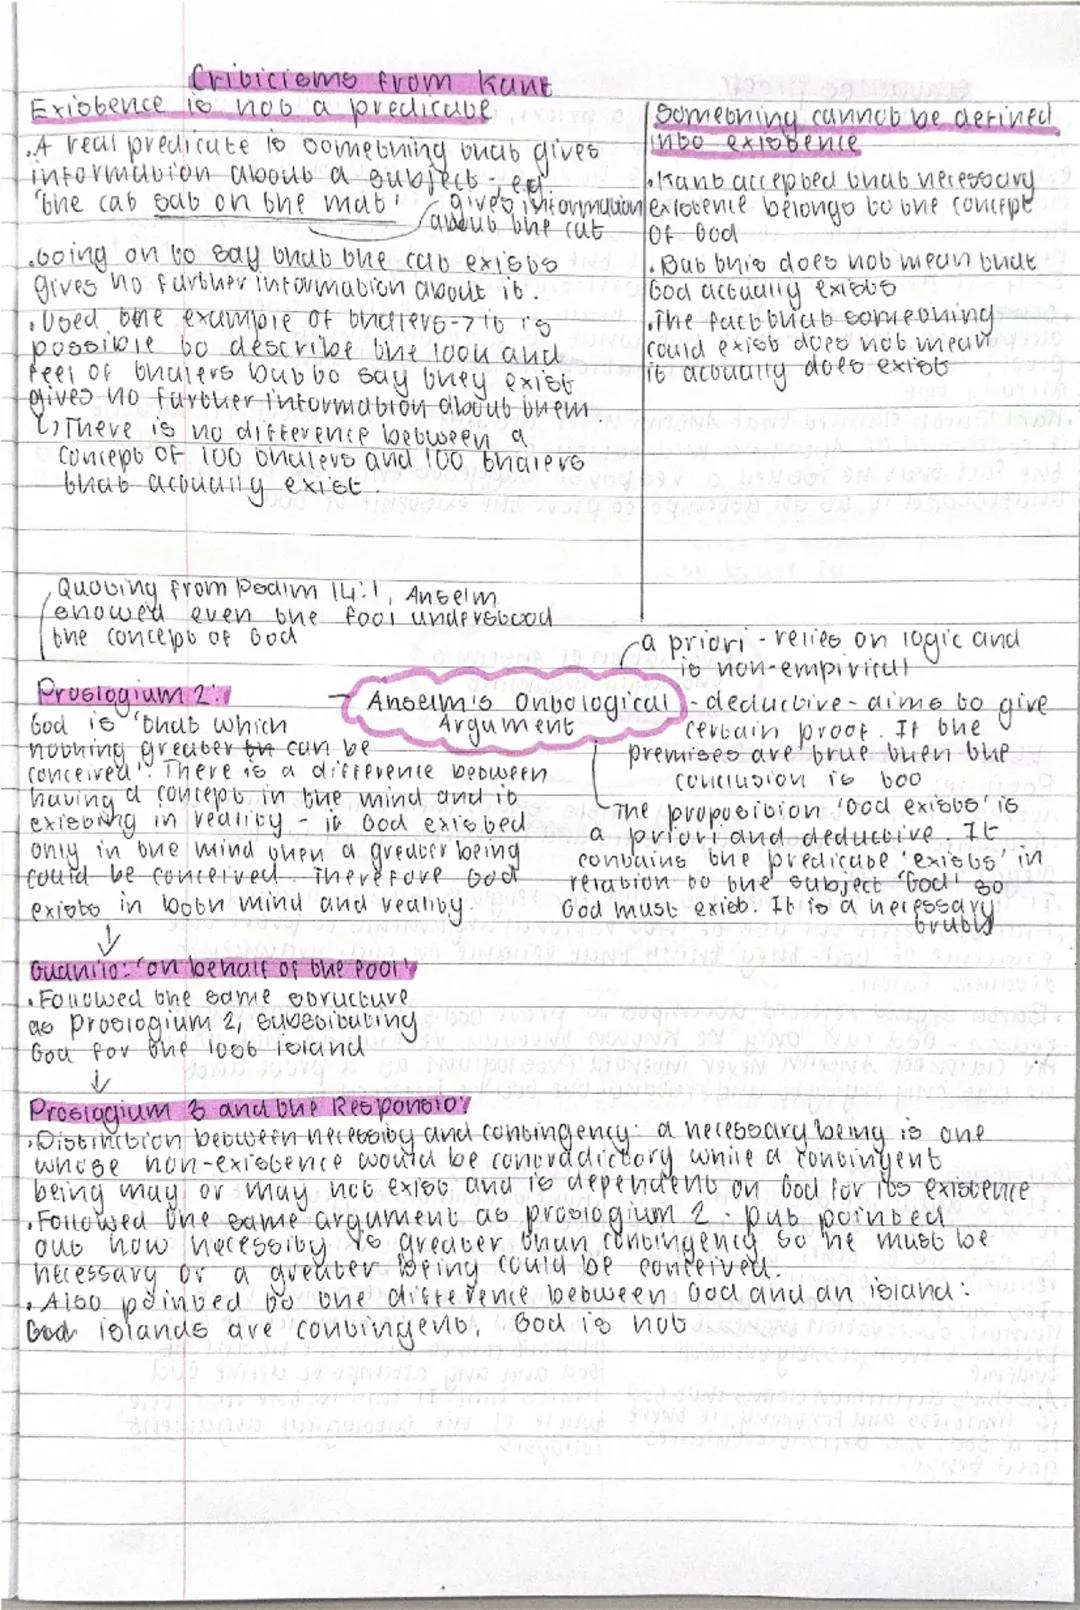 Criticisms from Kant
Existence is not a predicate
. A real predicate is something that gives
information about a subject, e.g.
'the cat sat on the mat'
gives information
about the cat
. Going on to say that the cat exists
gives no further information about it.
. Used the example of thalers -> it is
possible to describe the look and
feel of thalers but to say they exist
gives no further information about them
↳ There is no difference between a
concept of 100 thalers and 100 thalers
that actually exist
Something cannot be defined
into existence
. Kant accepted that necessary
existence belongs to the concept
of God
. But this does not mean that
God actually exists
. The fact that something
could exist does not mean
it actually does exist
Quoting from Psalm 14:1, Anselm
showed even the fool understood
the concept of God
Anselm's Ontological
Argument
a priori - relies on logic and
is non-empirical
- deductive - aims to give
certain proof. If the
premises are true then the
conclusion is too
The proposition 'God exists' is
a priori and deductive. It
contains the predicate 'exists' in
relation to the subject 'God' so
God must exist. It is a necessary
truth
Proslogium 2:
God is 'that which
nothing greater th can be
conceived'. There is a difference between
having a concept in the mind and it
existing in reality - if God existed
only in the mind then a greater being
could be conceived. Therefore God
exists in both mind and reality.
↓
Guanilo: 'on behalf of the fool'
. Followed the same structure
as Proslogium 2, substituting
God for the lost island
↓
Proslogium 3 and the Responsio:
. Distinction between necessity and contingency: a necessary being is one
whose non-existence would be contradictory while a contingent
being may or may not exist and is dependent on God for its existence
. Followed the same argument as proslogium 2 : but pointed
out how necessity is greater than contingency so he must be
necessary or a greater being could be conceived.
. Also pointed to the difference between God and an island:
islands are contingent, God is not